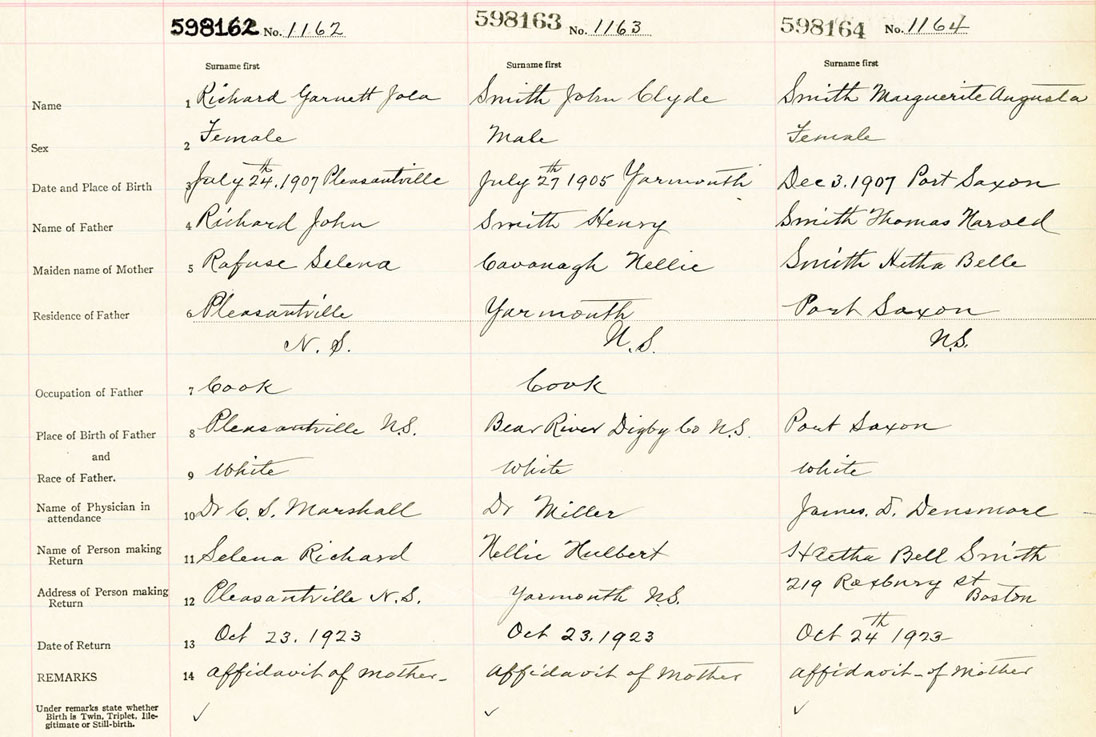 598162 No. 1162 598163 No. 1163 598164 No. 1164
Surname first Surname first Surname first
Name 1 Richard Garnett Smith John Clyde Smith Marguerite Augusta
Sex 2 Female Male Female
Date and Place of Birth 3 July 24th. 1907 Pleasantville July 27th 1905 Yarmouth Dec 3. 1907 Port Saxon
Name of Father 4 Richard John Smith Henry Smith Thomas Harold
Maiden name of Mother 5 Rafuse Selena Cavanagh Nellie Smith Hetha Belle
Residence of Father 6 Pleasantville Yarmouth Port Saxon
N. S. N.S. N.S.
Occupation of Father 7 Cook Cook
Place of Birth of Father 8 Pleasantville N.S. Bear River Digby Co N.S. Port Saxon
and
Race of Father. 9 White White White
Name of Physician in attendance 10 Dr C. S. Marshall Dr Miller James. D. Densmore
Name of Person making Return 11 Selena Richard Nellie Hulbert Bell Smith
Address of Person making Return 12 Pleasantville N.S. Yarmouth N.S. 219 Roxbury St Boston
Date of Return 13 Oct 23. 1923 Oct 23. 1923 Oct 24th 1923
REMARKS 14 affidavit of mother affidavit of Mother affidavit of Mother
Under remarks state whether
Birth is Twin, Triplet, Ille-
gitimate or Still-birth. ✓ ✓ ✓